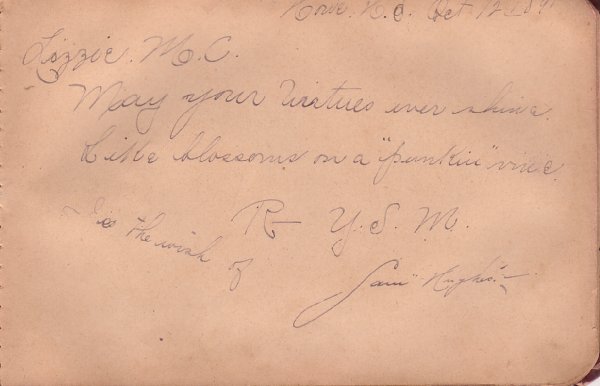 Oct. 12
Lizzie. M. C.
May your Virtues ever shine.
Like blossoms on a "punkin" vine.
R Y. S. M.
Is the wish of
Sam Hughes.